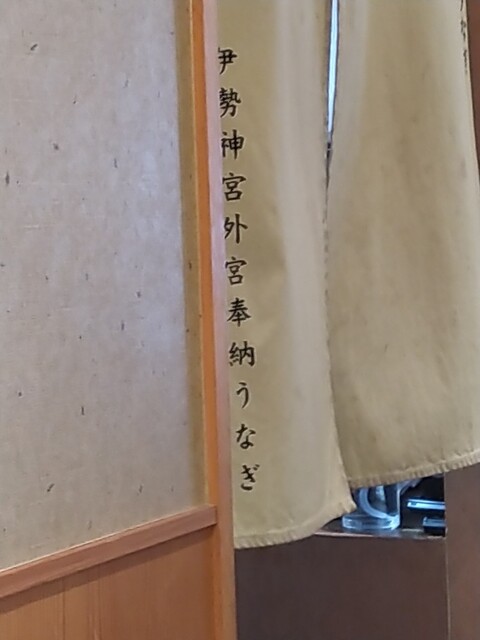 伊勢神宮外宮奉納うなぎ